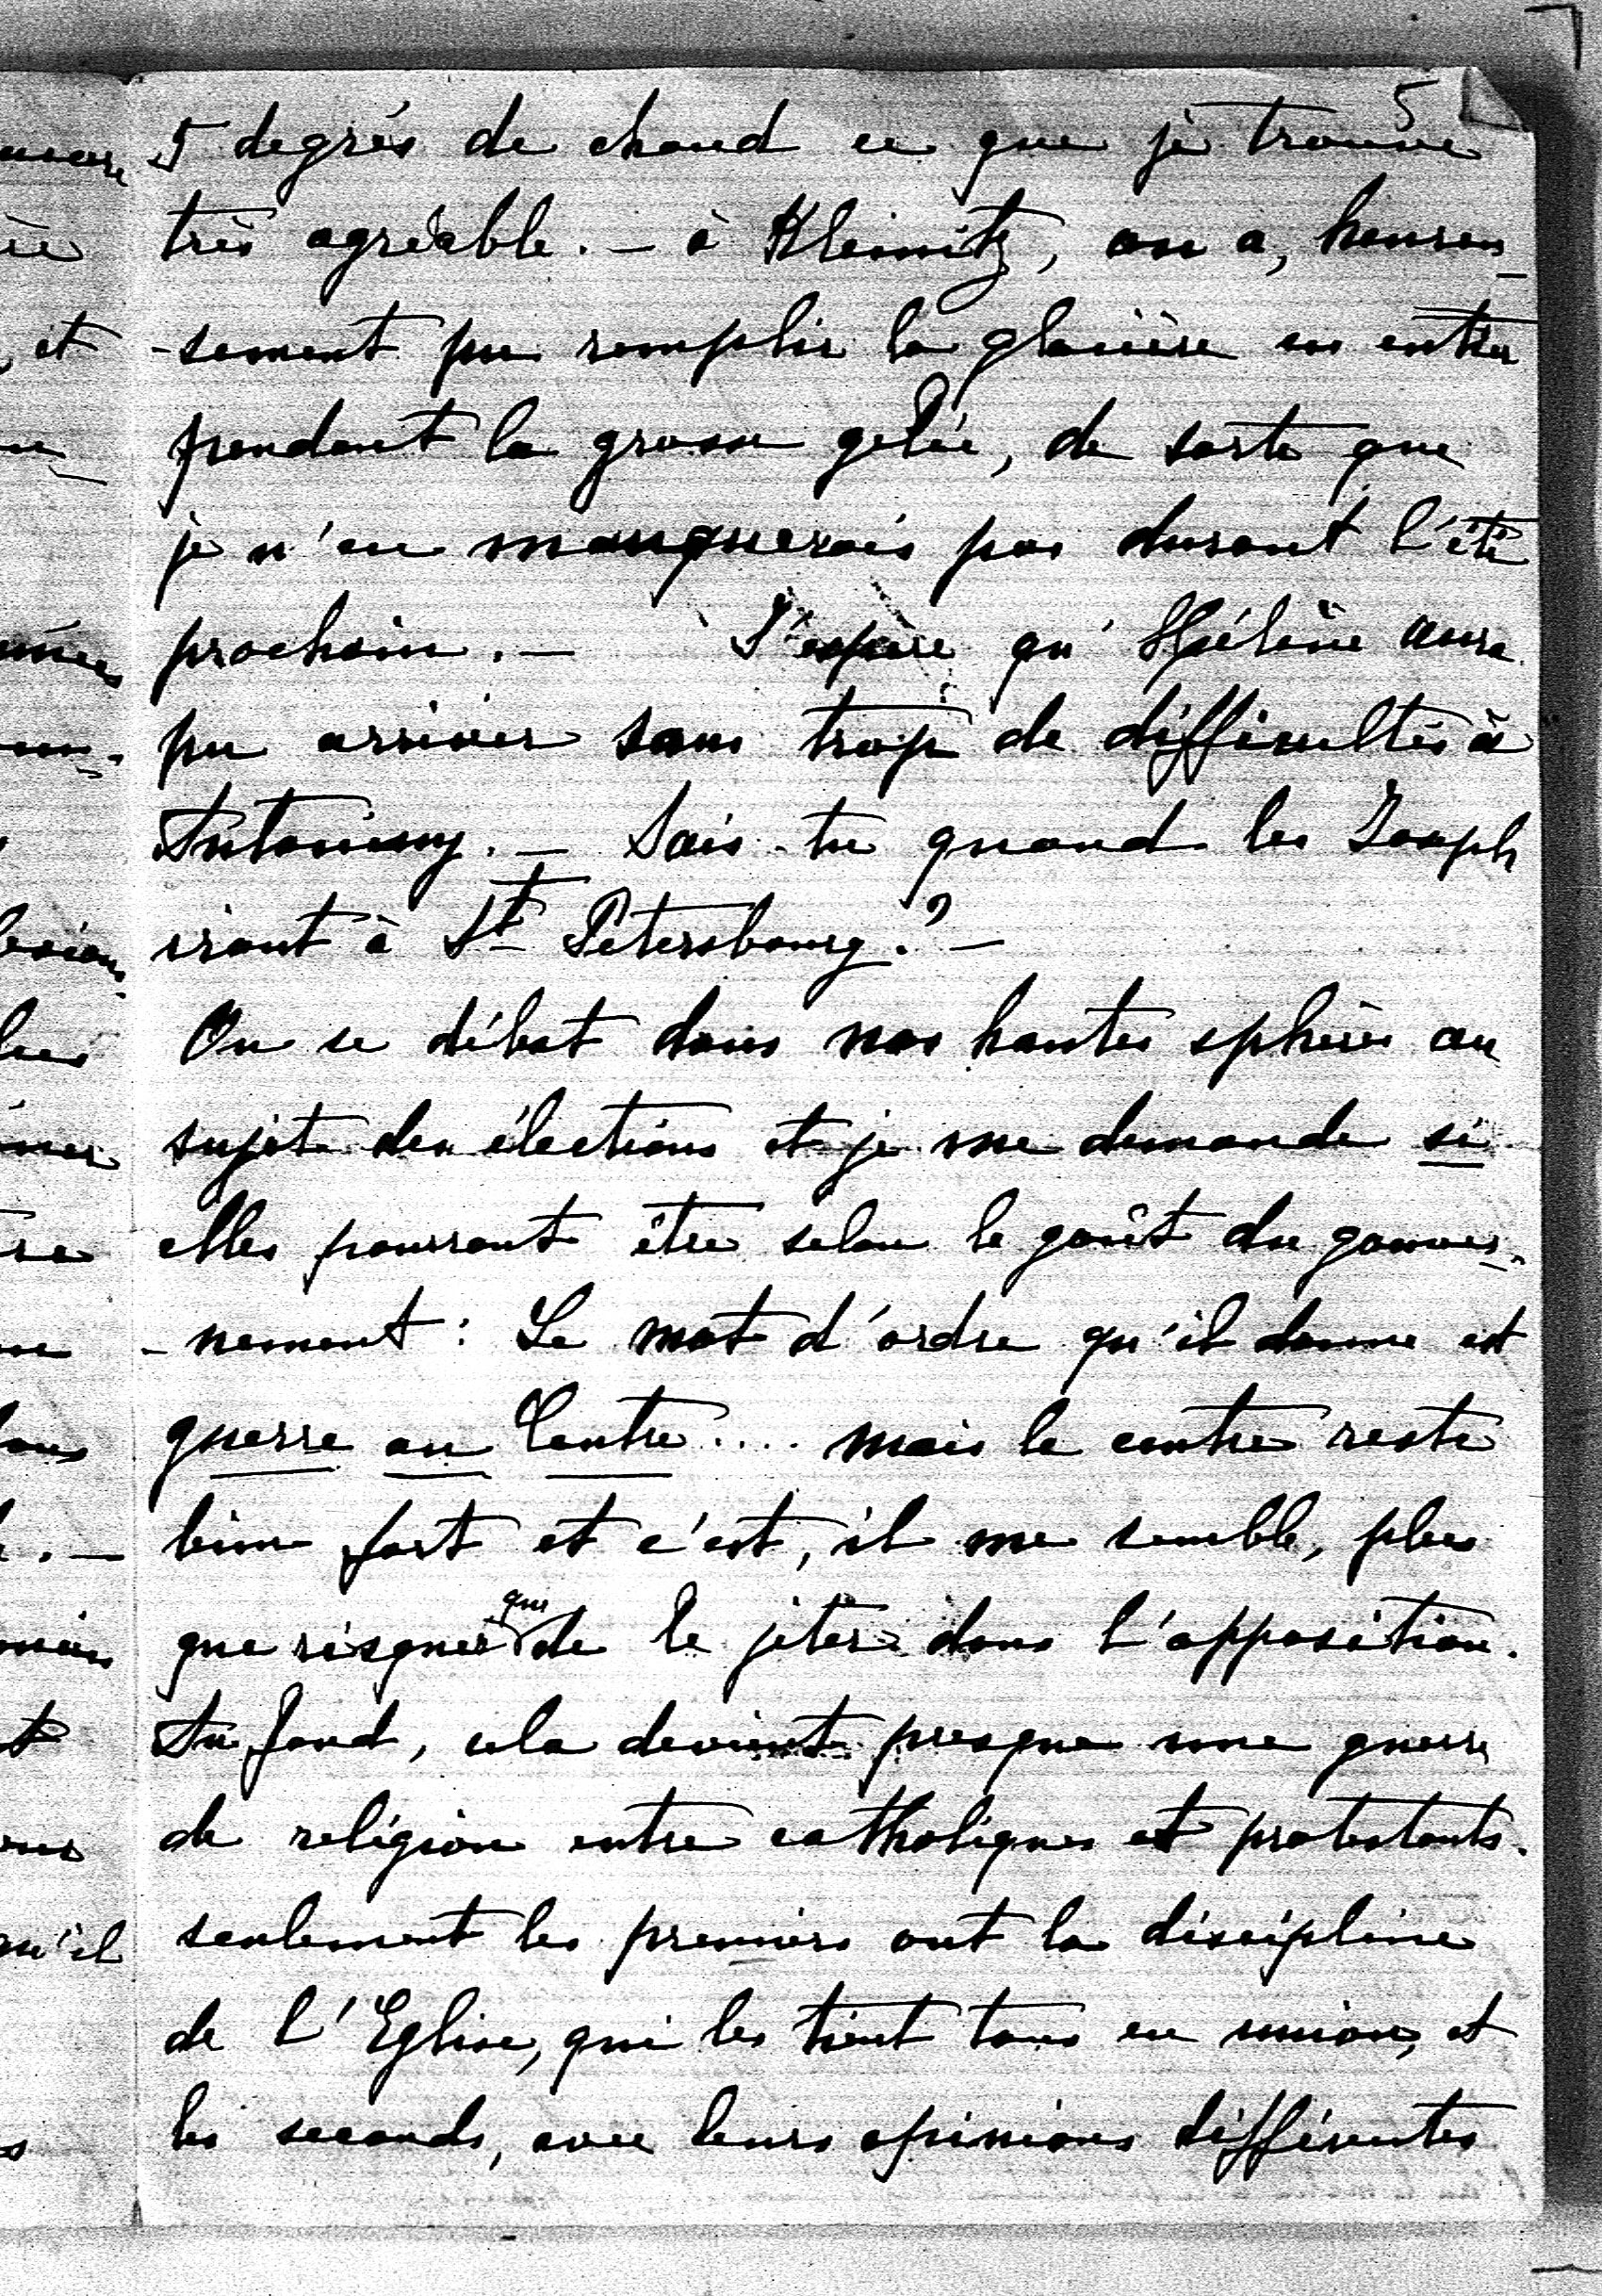 5
5 degrés de chaud ce que je trouve
très agréable. – à Kleinitz, on a, heureu-
-sement pu remplir la glacière en entier
pendant la grosse gelée, de sorte que
je n'en manquerais pas durant l'été
prochain. – J'espère qu'Hélène aura
pu arriver sans trop de difficultés à
Antoniny. – Sais-tu quand les Joseph
iront à St Pétersbourg? –
On se débat dans nos hautes sphères au
sujet des élections et je me demande si
elles pourront être selon le goût du gouver-
-nement: Le mot d'ordre qu'il donne est
guerre au Centre.... mais le centre reste
bien fort et c'est, il me semble, plus
que
que risquer de le jeter dans l'opposition.
Au fond, cela devient presque une guerre
de religion entre catholiques et protestants.
seulement les premiers ont la discipline
de l'Eglise, qui les tient tous en union, et
les seconds, avec leurs opinions différentes